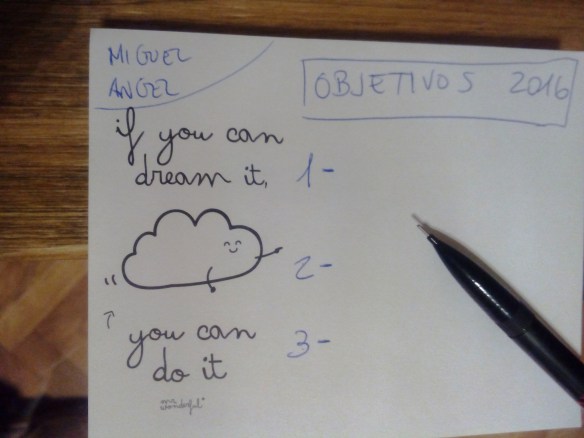 MIGUEL
ANGEL
OBJETIVOS 2016
if you can
dream it,
1-
2-
you can
do it
3-
mr.
wonderful*